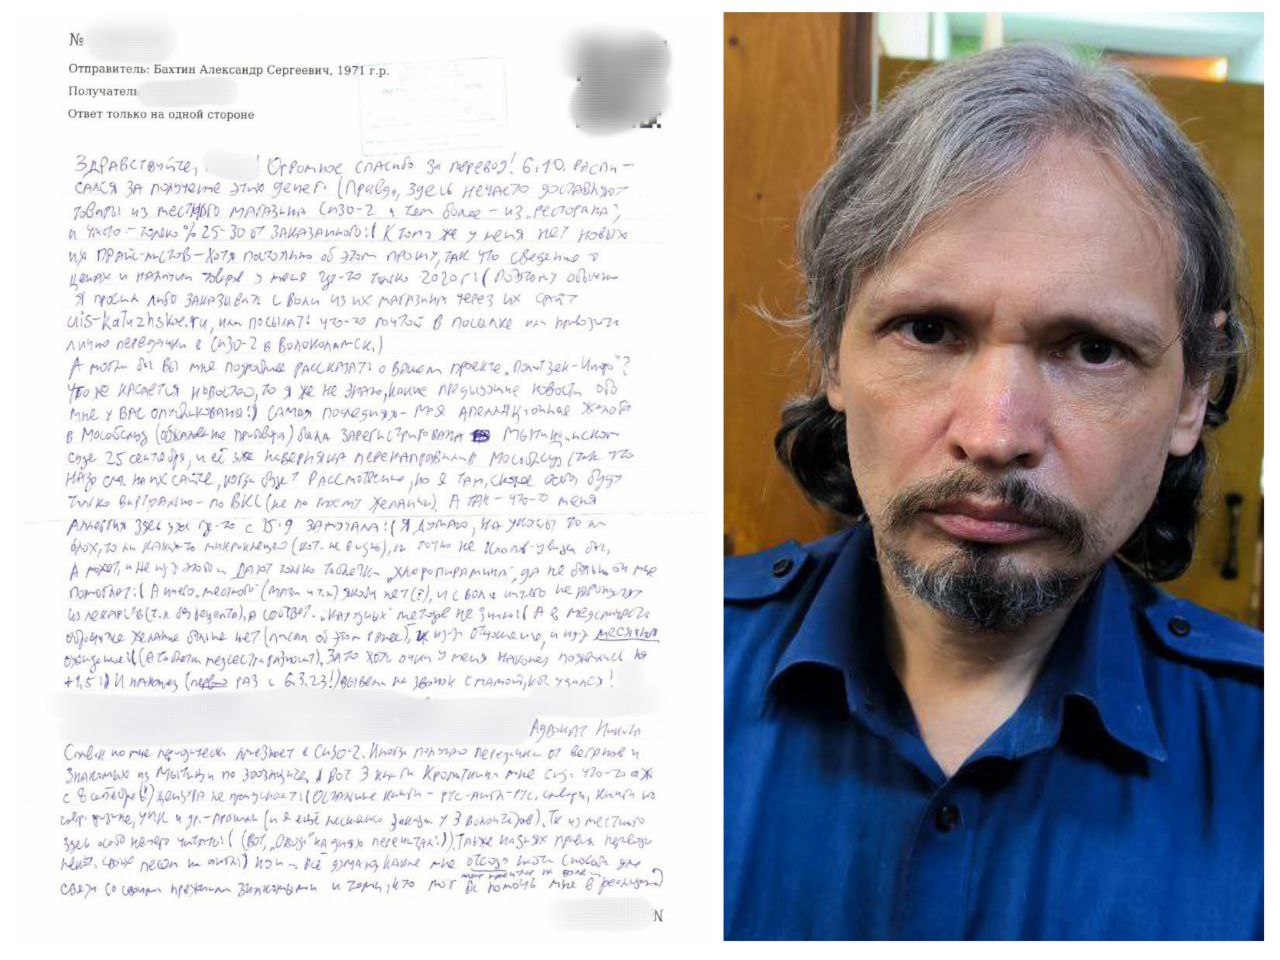 №
Отправитель: Бахтин Александр Сергеевич, 1971 г.р.
Получатель
Ответ только на одной стороне
Здравствуйте, ! Огромное спасибо за перевод! 6.10. распи-
сался за получение этих денег. (Правда, здесь нечасто доставляют
товары из местного магазина СИЗО-2 и тем более - из „ресторана",
и часто - только % 25-30 от заказанного:( К тому же у меня нет новых
их прайс-листов - хотя постоянно об этом прошу, так что сведения о
ценах и наличии товаров у меня где-то только 2020 г:( Поэтому обычно
я просил либо заказывать с воли из их магазина через их сайт
uis-kaluzhskoe.ru, или посылать что-то почтой в посылке или приводить
лично передачки в СИЗО-2 в Волоколамск.)
А могли бы вы мне подробнее рассказать о вашем проекте „Политзек-Инфо"?
Что же касается новостей, то я же не знаю, какие предыдущие новости обо
мне у вас опубликованы:) Самая последняя - моя апелляционная жалоба
в Мособлсуд (обжалование приговора) была зарегистрирована в Мытищинском
суде 25 сентября, и её уже наверняка перенаправили в Мособлсуд, так что
надо см. на их сайте, когда будет рассмотрение, но я там, скорее всего буду
только виртуально - по ВКС (не по моему желанию). А так - что-то меня
аллергия здесь уже где-то с 15.9 замучала:( Я думаю, на укусы то ли
блох, то ли каких-то микроклещей (кот. не видно), т.к. точно не клопов - увидел бы,
А может, и не из-за этого. Дают только таблетки „Хлоропирамина", да не больно он мне
помогает:( А иного, местного (мази и т.п.) якобы нет(?), и с воли ничего не пропустят
из лекарств (т.к. без рецепта), а соответ.
обращаться желания больше нет (писал об этом ранее), и из-за отношения, и из-за месячных
ожиданий:( Зато хоть очки у меня наконец появились на
+1,5:) И наконец (первый раз с 6.3.23!) вывели на звонок с мамой, кот. удался!
Адвокат Никита
Славин ко мне периодически приезжает в СИЗО-2. Иногда получаю передачки от веганов и
знакомых из Мытищ по зоозащите. А вот 3 книги Кропоткина мне сюда что-то аж
с 8 сентября(!) цензура не пропускает:( Остальные книги - рус-англ-рус. словари, книги по
УПК и др. - прошли (и я ещё несколько заказал у 3 волонтёров). Т.к. из местного
здесь особо нечего читать:( (Вот, „Овод" на днях перечитал:)). Также на днях правил перевод
некот. своих песен на англ:) Ну и - всё думаю, какие мне отсюда найти способы для
связи со своими прежними знакомыми и теми, кто мог бы помочь мне в реализации
моих проектов на воле...
N